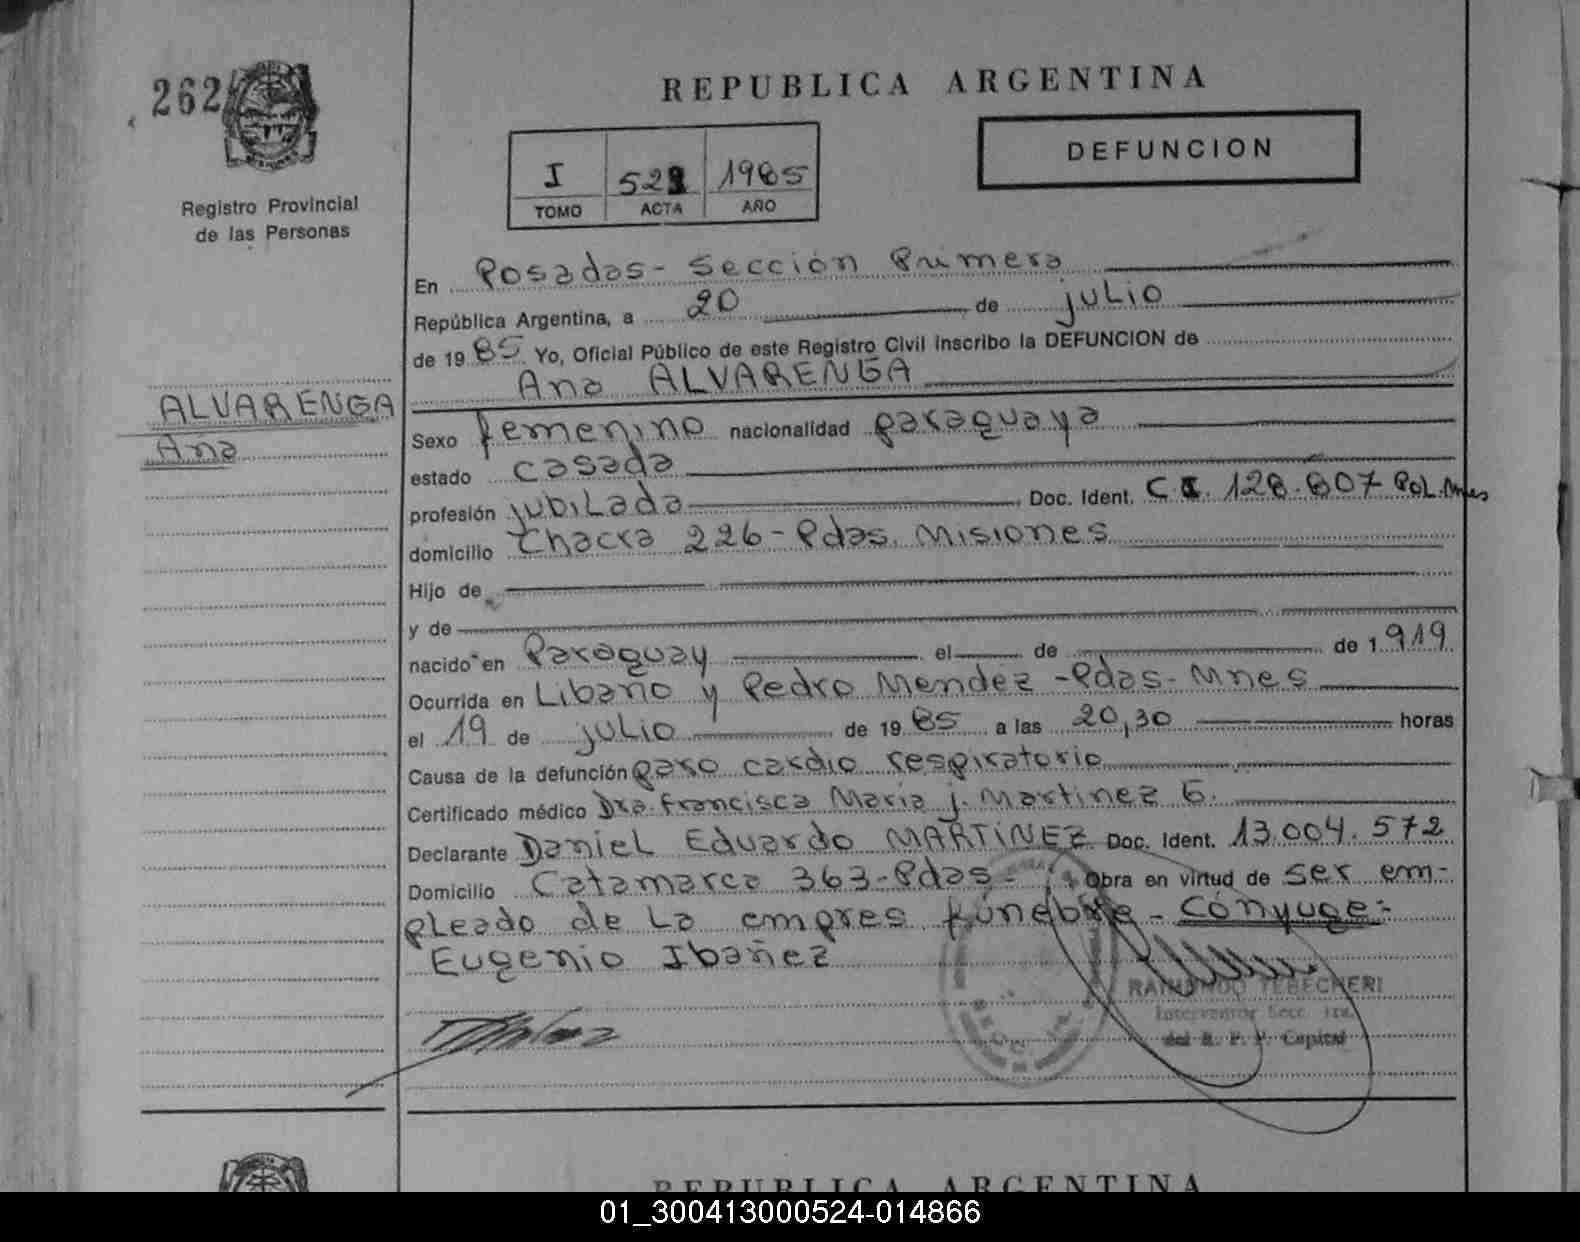 262
Registro Provincial
de las Personas
ALVARENGA
Ana
REPUBLICA ARGENTINA
DEFUNCION
I 521 1985
TOMO ACTA AÑO
En Posadas - Sección Primera
República Argentina, a 20 de julio
de 1985 Yo, Oficial Público de este Registro Civil inscribo la DEFUNCION de
Ana ALVARENGA
Sexo femenino nacionalidad paraguaya
estado casada
profesión jubilada Doc. Ident. C.I. 128.807 Pol. Mnes
domicilio Chacra 226 - Pdas. Misiones
Hijo de
y de
nacido en Paraguay el de de 1.919
Ocurrida en Libano y Pedro Mendez - Pdas - Mnes
el 19 de julio de 1985 a las 20,30 horas
Causa de la defunción paro cardio respiratorio
Certificado médico Dra. Francisca Maria j. Martinez G.
Declarante Daniel Eduardo MARTINEZ Doc. Ident. 13.004.572
Domicilio Catamarca 363 - Pdas - Obra en virtud de ser em-
pleado de la empres fúnebre - Cónyuge:
Eugenio Ibañez
RAIMUNDO TEBECHERI
Interventor Secc. 1ra.
del R. P. P. Capital
REPUBLICA ARGENTINA
01_300413000524-014866